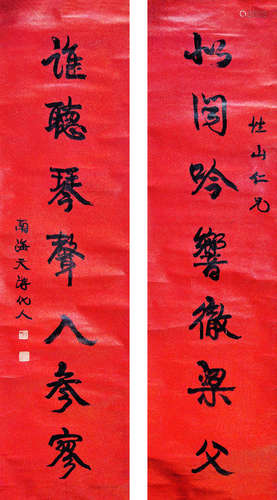 性山仁兄
似聞吟響徹梁父
誰聽琴聲入參寥
南海天游化人